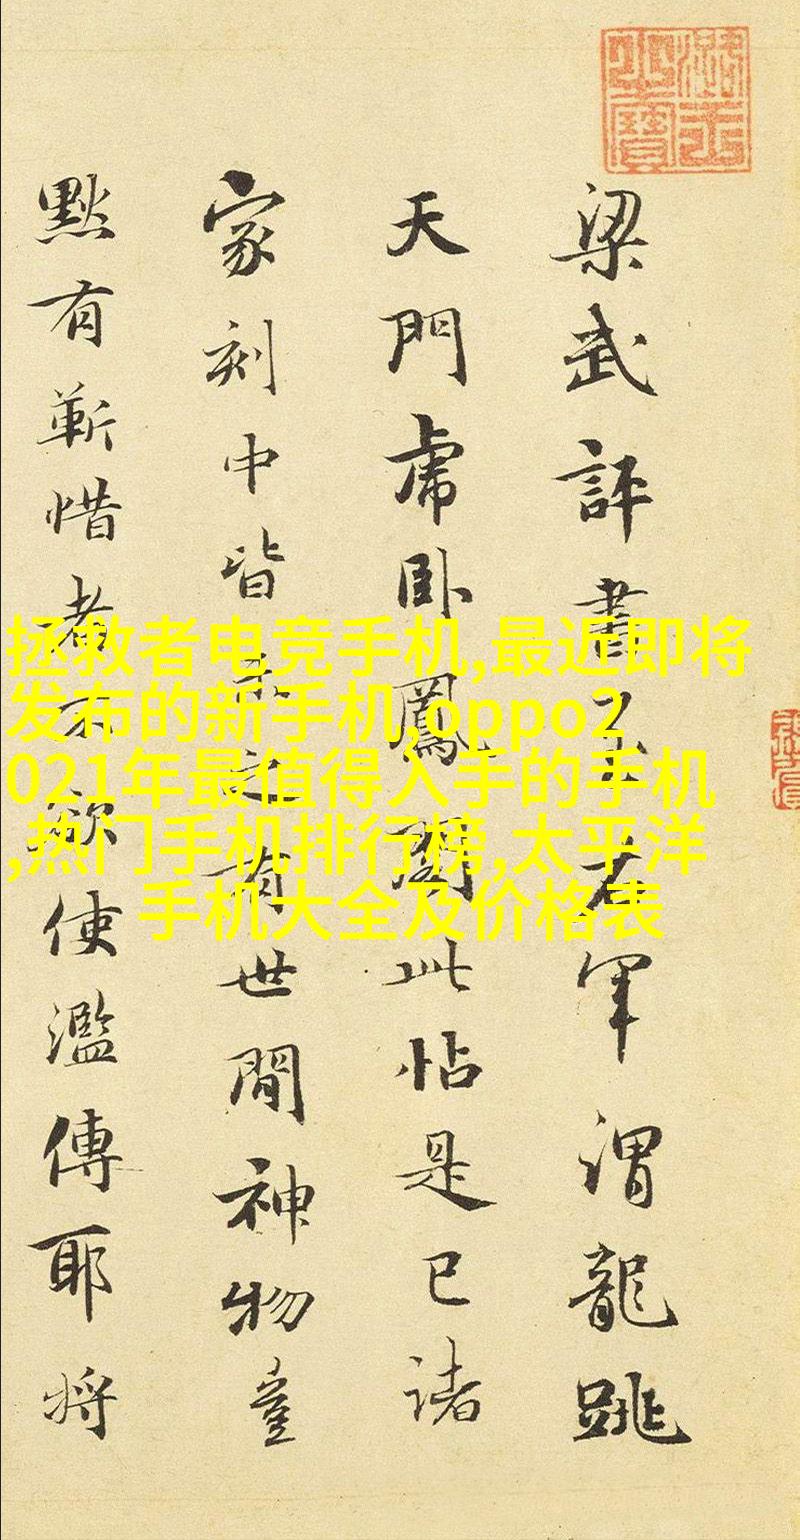 梁武評書至右軍謂龍跳
天門虎卧鳳閣此帖是已諸
家刻中皆未之有世間神物豈
黙有靳惜者不欲使濫傳耶將
拯救者电竞手机,最近即将
发布的新手机,oppo2
021年最值得入手的手机
,热门手机排行榜,太平洋
手机大全及价格表